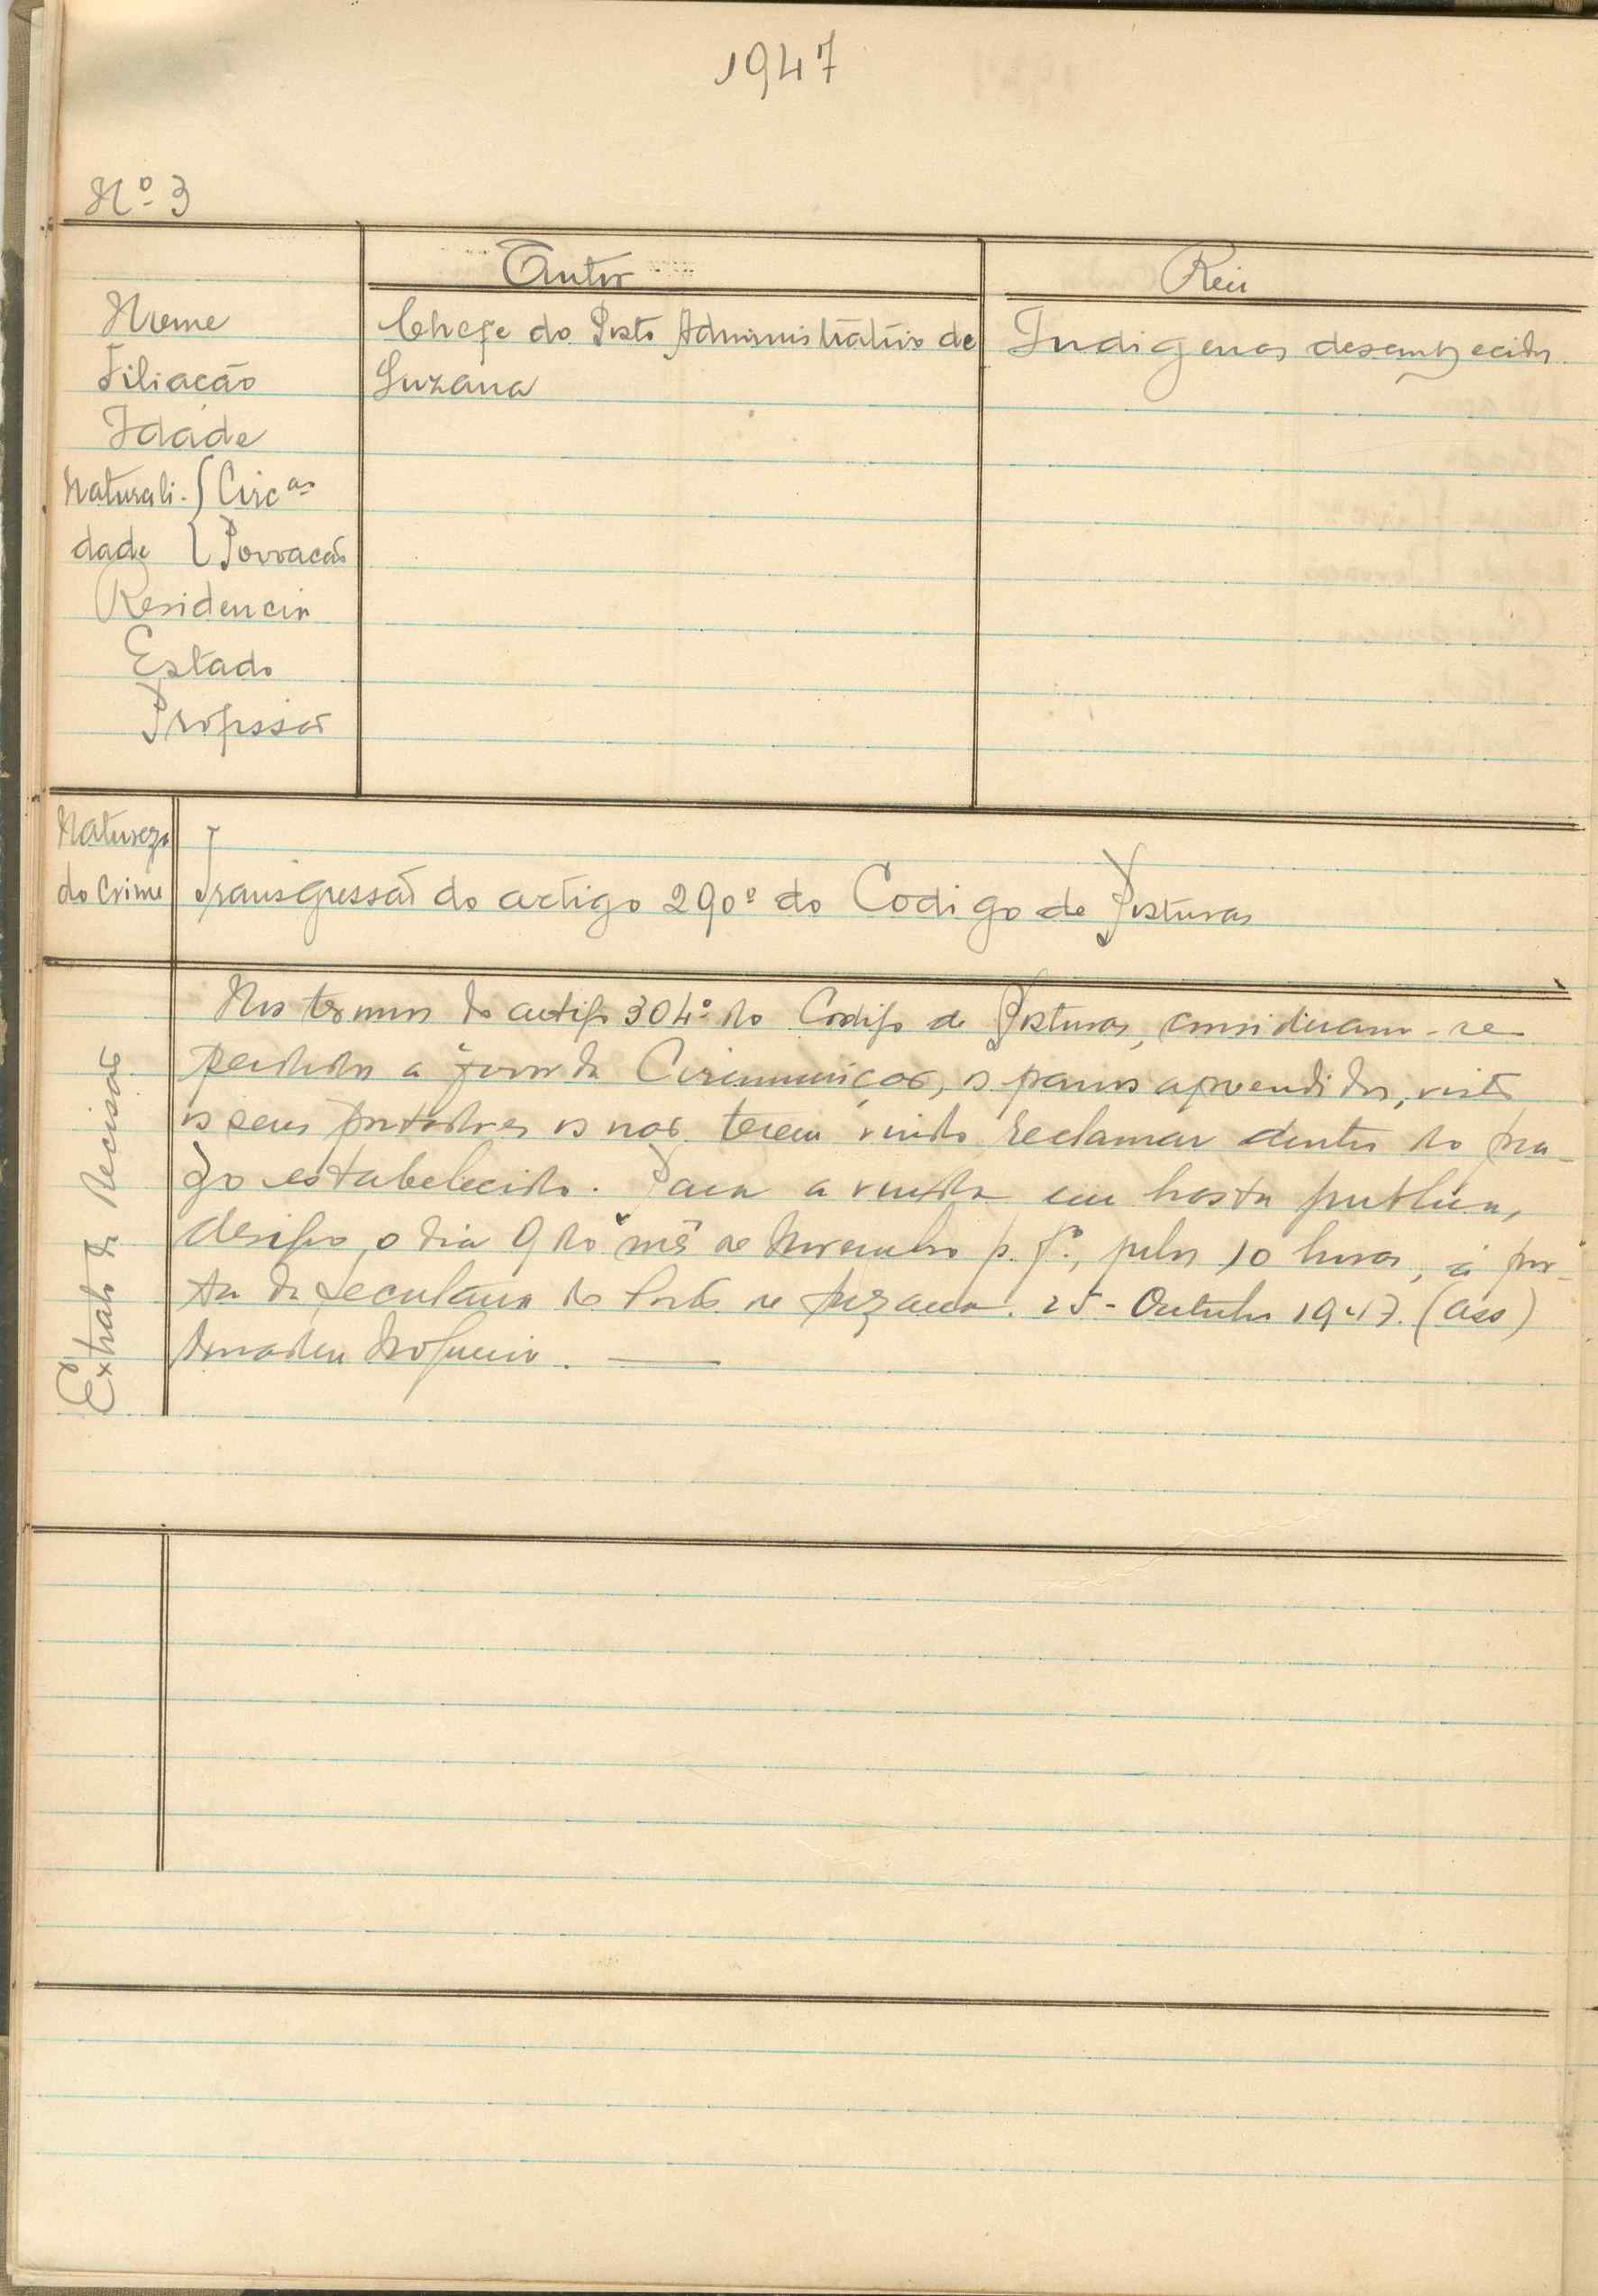 1947
Nº 3
Autor
Reu
Nome
Chefe do Posto Administrativo de
Indigenas desconhecidos
Filiacão
Suzana
Idade
Naturali- Circ ao
dade Povoacão
Residencia
Estado
Profissão
Natureza
do Crime
Transgressão do artigo 290º do Codigo de Posturas
Extrato da Decisão
Nos termos do artigo 304º do Codigo de Posturas, consideram-se
perdidos a favor da Circunscição, os panos apreendidos, visto
os seus portadores os não terem vindo reclamar dentro do pra-
zo estabelecido. Para a venda em hasta publica,
designo, o dia 9 do mês de Novembro p. fº, pelas 10 horas, á por-
ta da Secretaria do Posto de Suzana. 25-Outubro 1947. (ass)
Amadeu Nogueira.